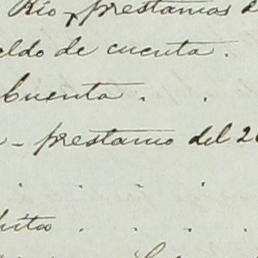 Rio, prestamos
eldo de cuenta.
Cuenta . .
- prestamo del 2
. . . .
. . . .